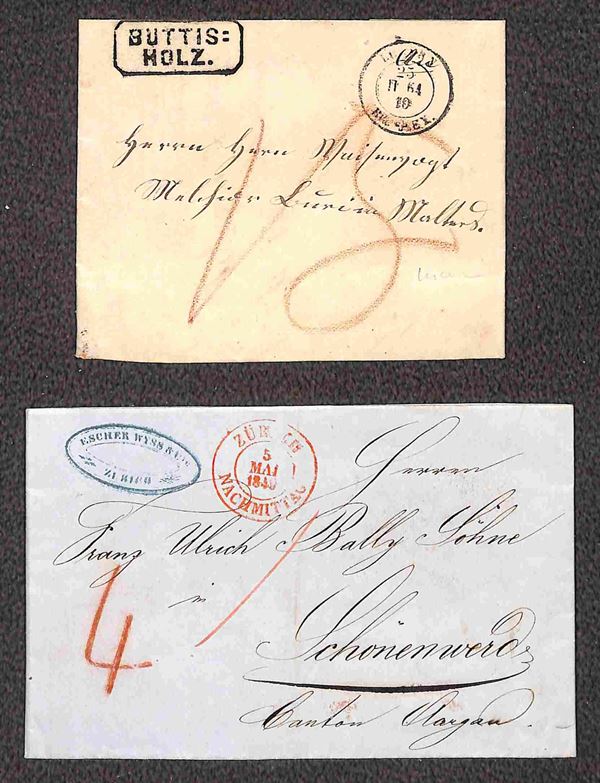 BUTTIS=
HOLZ.
25
II 64
10
15
Herrn Herrn Waisenvogt
Melchior in Malters.
ESCHER WYSS & CIE
ZÜRICH
ZÜRICH
5
MAI
184
NACHMITTAG
Herren
Franz Ulrich Bally Söhne
in
4
Schönenwerd
Canton Aargau.